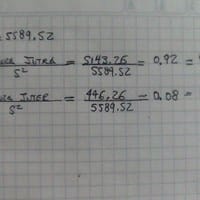 = 5589.52
INTRA / S² = 5143.26 / 5589.52 = 0,92 =
INTER / S² = 446.26 / 5589.52 = 0.08 =